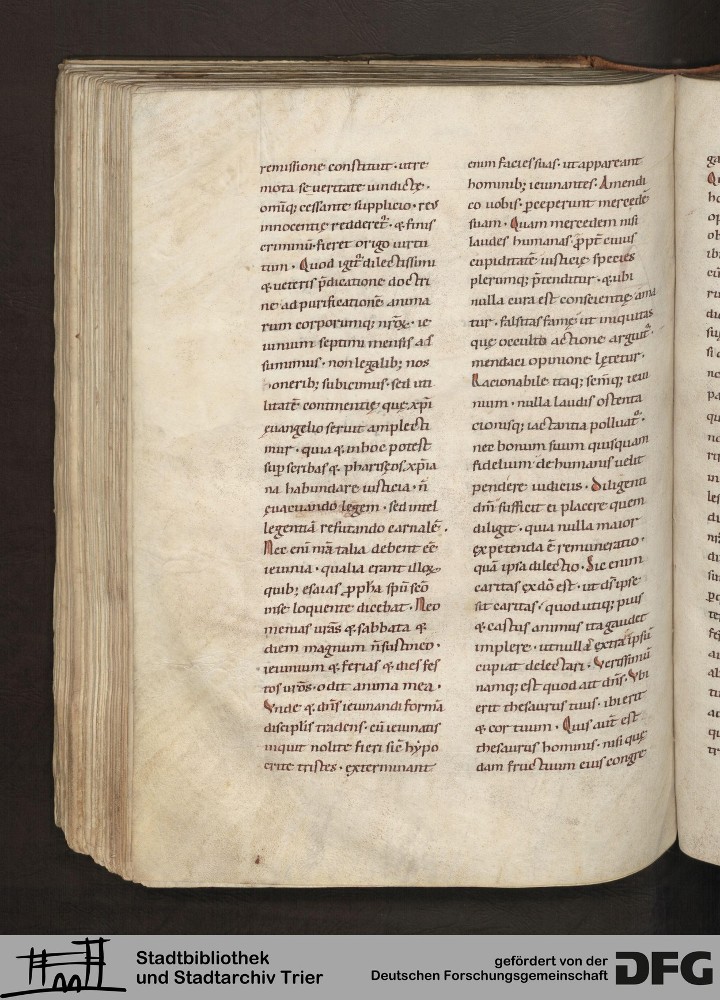 remissione constituit · ut re
mota seueritate uindictę ·
omniq; cessante supplicio · reis
innocentię redderet᷒ · & finis
criminū fieret origo uirtu
tum · Quod igit᷒ dilectissimi
& ueteris p̄dicatione doctri
nę ad purificationē anima
rum corporumq; nr̄oꝝ · ie
iunium septimi mensis ad
sumimus · non legalib; nos
honerib; subicimus · sed uti
litatē continentię quę xp̄i
euangelio seruit amplecti
mur · quia & in hoc potest
sup scribas & phariseos xp̄ia
na habundare iusticia · n̄
euacuando legem · sed intel
legentiā refutando carnalē .
Nec eni m̄ talia debent eē
ieiunia · qualia erant illoꝝ
quib; esaias ꝓph̄a sp̄u sc̄o
in se loquente dicebat · Neo
menias ur̄as & sabbata &
diem magnum n̄ sustineo ·
ieiunium & ferias & dies fes
tos ur̄os · odit anima mea ·
Vnde & dn̄s ieiunandi formā
discipulis tradens · cū ieiunatis
inquit nolite fieri sic̄ hypo
crite tristes · exterminant
enim facies suas · ut appareant
hominib; ieiunantes · Amen di
co uobis · perceperunt mercedē
suam · Quam mercedem nisi
laudes humanas · ꝓpt̄ cuius
cupiditatē iusticię species
plerumq; p̄tenditur · & ubi
nulla cura est conscientię ama
tur · falsitas famę ut iniquitas
que occulto actione arguit᷒ ·
mendaci opinione lętetur ·
Racionabile itaq; semq; ieiu
nium · nulla laudis ostenta
cionisq; iactantia polluat᷒ ·
nec bonum suum quisquam
fidelium de humanis uelit
pendere iudiciis · Diligenti
dm̄ sufficit ei placere quem
diligit · quia nulla maior
expetenda ē remuneratio ·
quā ipsa dilectio · Sic enim
caritas ex dō est · ut ds̄ ipse
sit caritas · quod utiq; pius
& castus animus ita gaudet
implere · ut nullā extra ipsū
cupiat delectari · Verissimū
namq; est quod ait dn̄s · Vbi
erit thesaurus tuus · ibi erit
& cor tuum · Quis aut̄ est
thesaurus hominis · nisi quę
dam fructuum eius congre
Stadtbibliothek
und Stadtarchiv Trier
gefördert von der
Deutschen Forschungsgemeinschaft
DFG